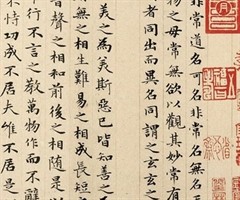 非常道名可名非常名無名
物之母常無欲以觀其妙常有
者同出而異名同謂之玄玄之
之為美斯惡已皆知善之為
無之相生難易之相成長短
音聲之相和前後之相隨是
行不言之教萬物作而不辭
不恃功成不居夫唯不居是